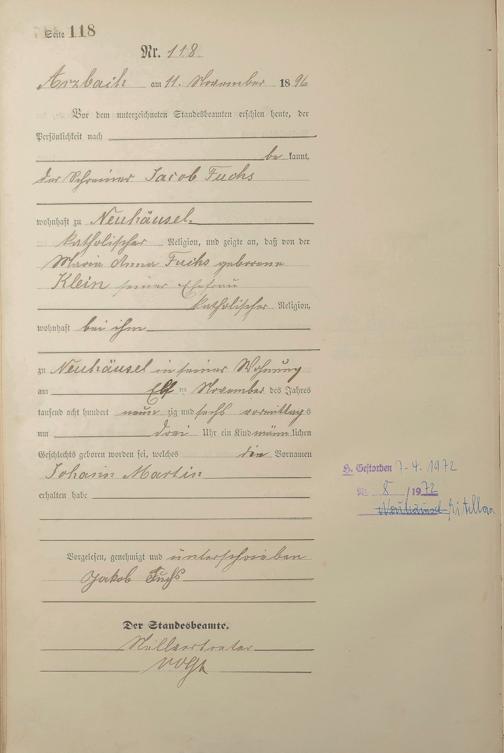 Seite 118
Nr. 118.
Arzbach am 11. November 1896
Vor dem unterzeichneten Standesbeamten erschien heute, der
Persönlichkeit nach
be kannt,
der Schreiner Jacob Fuchs
wohnhaft zu Neuhäusel.
katholischer Religion, und zeigte an, daß von der
Maria Anna Fuchs geborene
Klein seiner Ehefrau
katholischer Religion,
wohnhaft bei ihm
zu Neuhäusel in seiner Wohnung
am Elf ten November des Jahres
tausend acht hundert neun zig und sechs vormittags
um drei Uhr ein Kind männlichen
Geschlechts geboren worden sei, welches die Vornamen
Johann Martin
erhalten habe
Vorgelesen, genehmigt und unterschrieben
Jakob Fuchs
Der Standesbeamte.
Stellvertreter
Vogt
H. Gestorben 7-4. 1972
Nr. 8 /1972
Neuhäusel